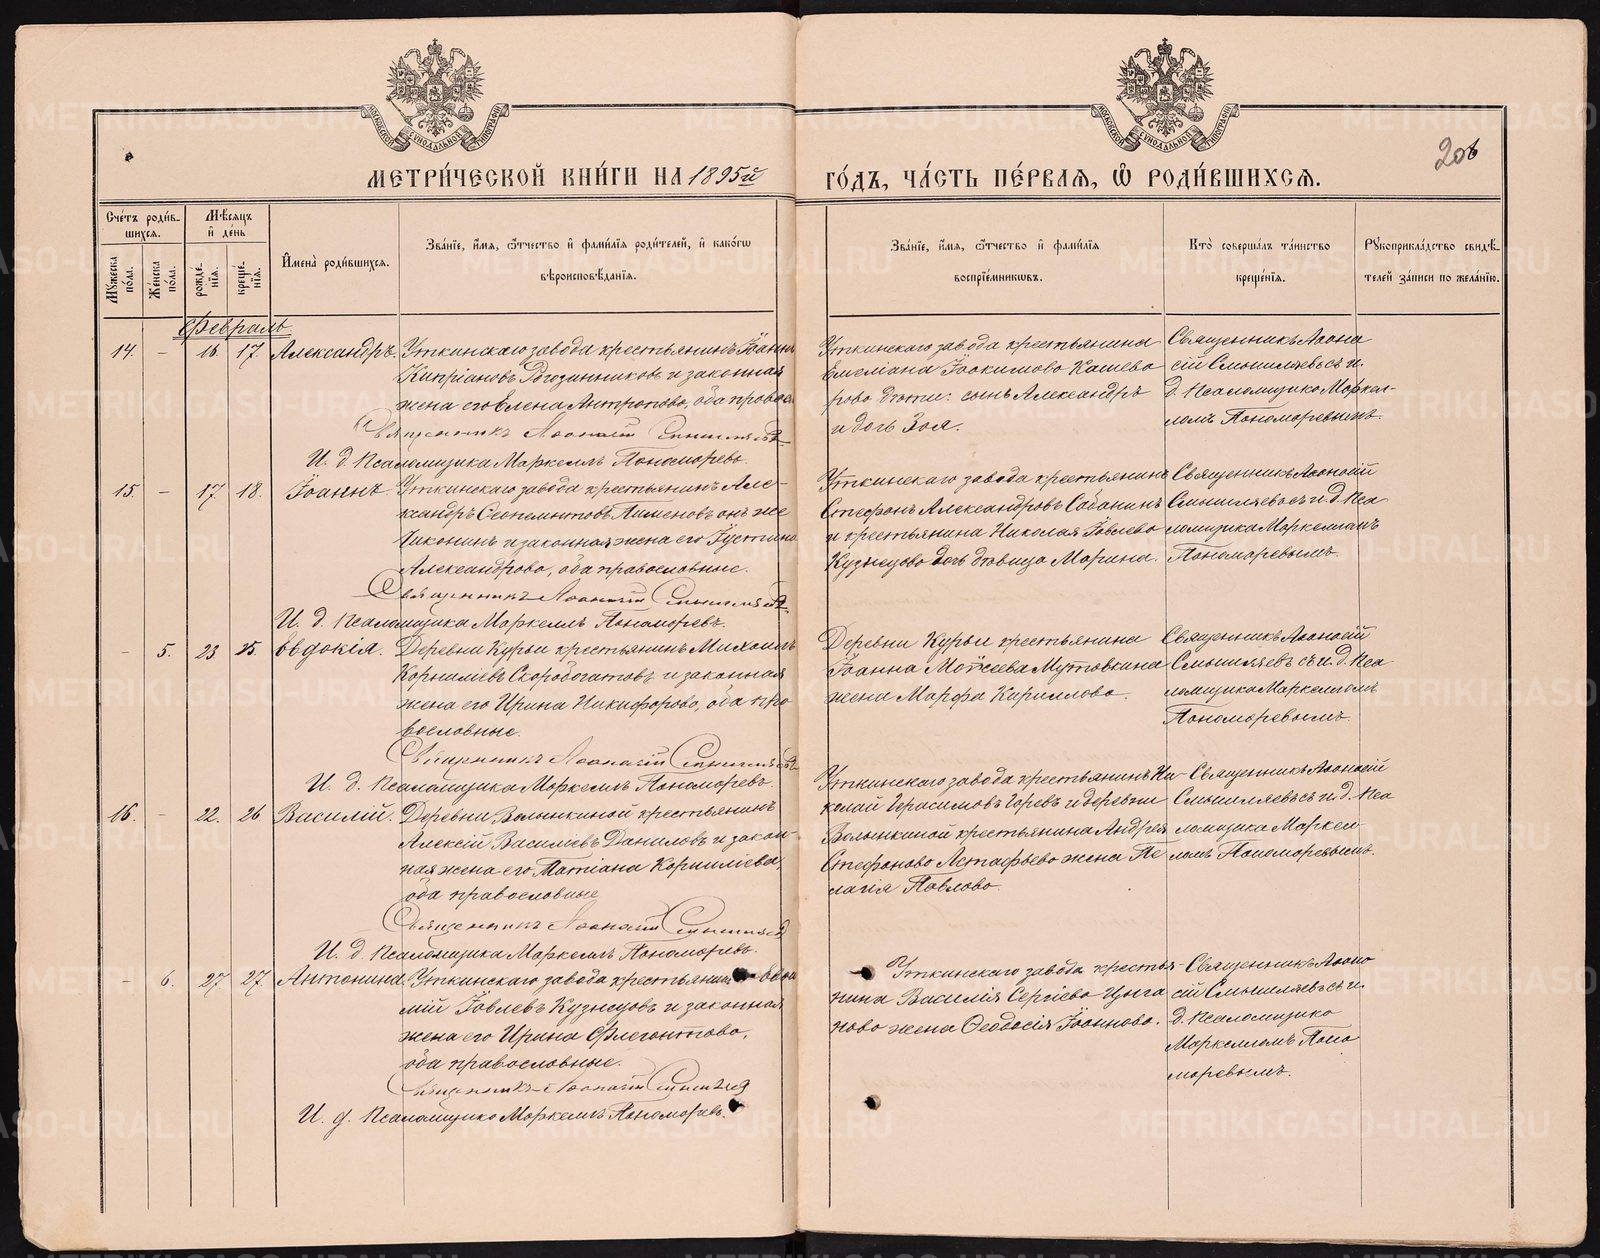 МЕТРИ́ЧЕСКОЙ КНИ́ГИ НА 1895й
ГО́ДЪ, ЧА́СТЬ ПЕ́РВАѦ, Ѡ РОДИ́ВШИХСѦ.
Сче́тъ роди́в-
шихсѧ.
Мꙋ́жеска по́ла.
Же́нска по́ла.
Мѣ́сѧцъ
и де́нь
рожде́-
нїѧ.
креще́-
нїѧ.
И́мена̀ роди́вшихсѧ.
Зва́нїе, и́мѧ, ѻ́тчество и фами́лїѧ роди́телей, и како́гѡ
вѣроисповѣ́данїѧ.
Зва́нїе, и́мѧ, ѻ́тчество и фами́лїѧ
воспрїе́мникѡвъ.
Кто̀ соверша́лъ та́инство
креще́нїѧ.
Рꙋкоприкла́дство свидѣ́-
телей за́писи по жела́нїю.
Февраль.
14. - 16. 17. Александръ.
Уткинскаго завода крестьянинъ Іоаннъ
Кипріановъ Рогозинниковъ и законная
жена его Елена Антропова, оба правосл
Священникъ Аѳанасій Смышляевъ
И. д. Псаломщика Маркеллъ Пономоревъ.
Уткинскаго завода крестьянина
Емеліана Іоакимова Кашева
рова дѣти: сынъ Александръ
и дочь Зоя.
Священникъ Аѳана
сій Смышляевъ съ и.
д. Псаломщика Маркел
ломъ Пономоревымъ.
15. - 17. 18. Іоаннъ.
Уткинскаго завода крестьянинъ Але-
ксандръ онъ же
и законная жена его Іустина
Александрова, оба православные.
Священникъ Аѳанасій Смышляевъ
И. д. Псаломщика Маркеллъ Пономоревъ.
Уткинскаго завода крестьянинъ
Стефанъ Александровъ Сабанинъ
и крестьянина Николая Іовлева
Кузнецова дочь дѣвица Марина.
Священникъ Аѳанасій
Смышляевъ съ и. д. Пса
ломщика Маркелломъ
Пономоревымъ.
- 5. 23 25. Евдокія.
Деревни Курьи крестьянинъ Михаилъ
Корниліевъ Скоробогатовъ и законная
жена его Ирина Никифорова, оба пра
вославные.
Священникъ Аѳанасій Смышляевъ
И. д. Псаломщика Маркеллъ Пономоревъ.
Деревни Курьи крестьянина
Іоанна Моѵсеева Мутовкина
жена Марфа Кириллова.
Священникъ Аѳанасій
Смышляевъ съ и. д. Пса
ломщика Маркелломъ
Пономоревымъ.
16. - 22. 26 Василій.
Деревни Волынкиной крестьянинъ
Алексій Василіевъ Даниловъ и закон-
ная жена его Татіана Корниліева,
оба православные
Священникъ Аѳанасій Смышляевъ
И. д. Псаломщика Маркеллъ Пономоревъ.
Уткинскаго завода крестьянинъ Ни-
колай Герасимовъ и деревни
Волынкиной крестьянина Андрея
Стефанова Астафьева жена Пе
лагія Павлова.
Священникъ Аѳанасій
Смышляевъ съ и. д. Пса
ломщика Маркел
ломъ Пономоревымъ.
- 6. 27 27. Антонина.
Уткинскаго завода крестьянинъ Евѳи
мій Іовлевъ Кузнецовъ и законная
жена его Ирина Флегонтова,
оба православные.
Священникъ Аѳанасій Смышляевъ
И. д. Псаломщика Маркеллъ Пономоревъ.
Уткинскаго завода крестья-
нина Василія Сергіева Цыга
нова жена Ѳеодосія Іоаннова.
Священникъ Аѳана
сій Смышляевъ съ и.
д. Псаломщика
Маркелломъ Поно
моревымъ.